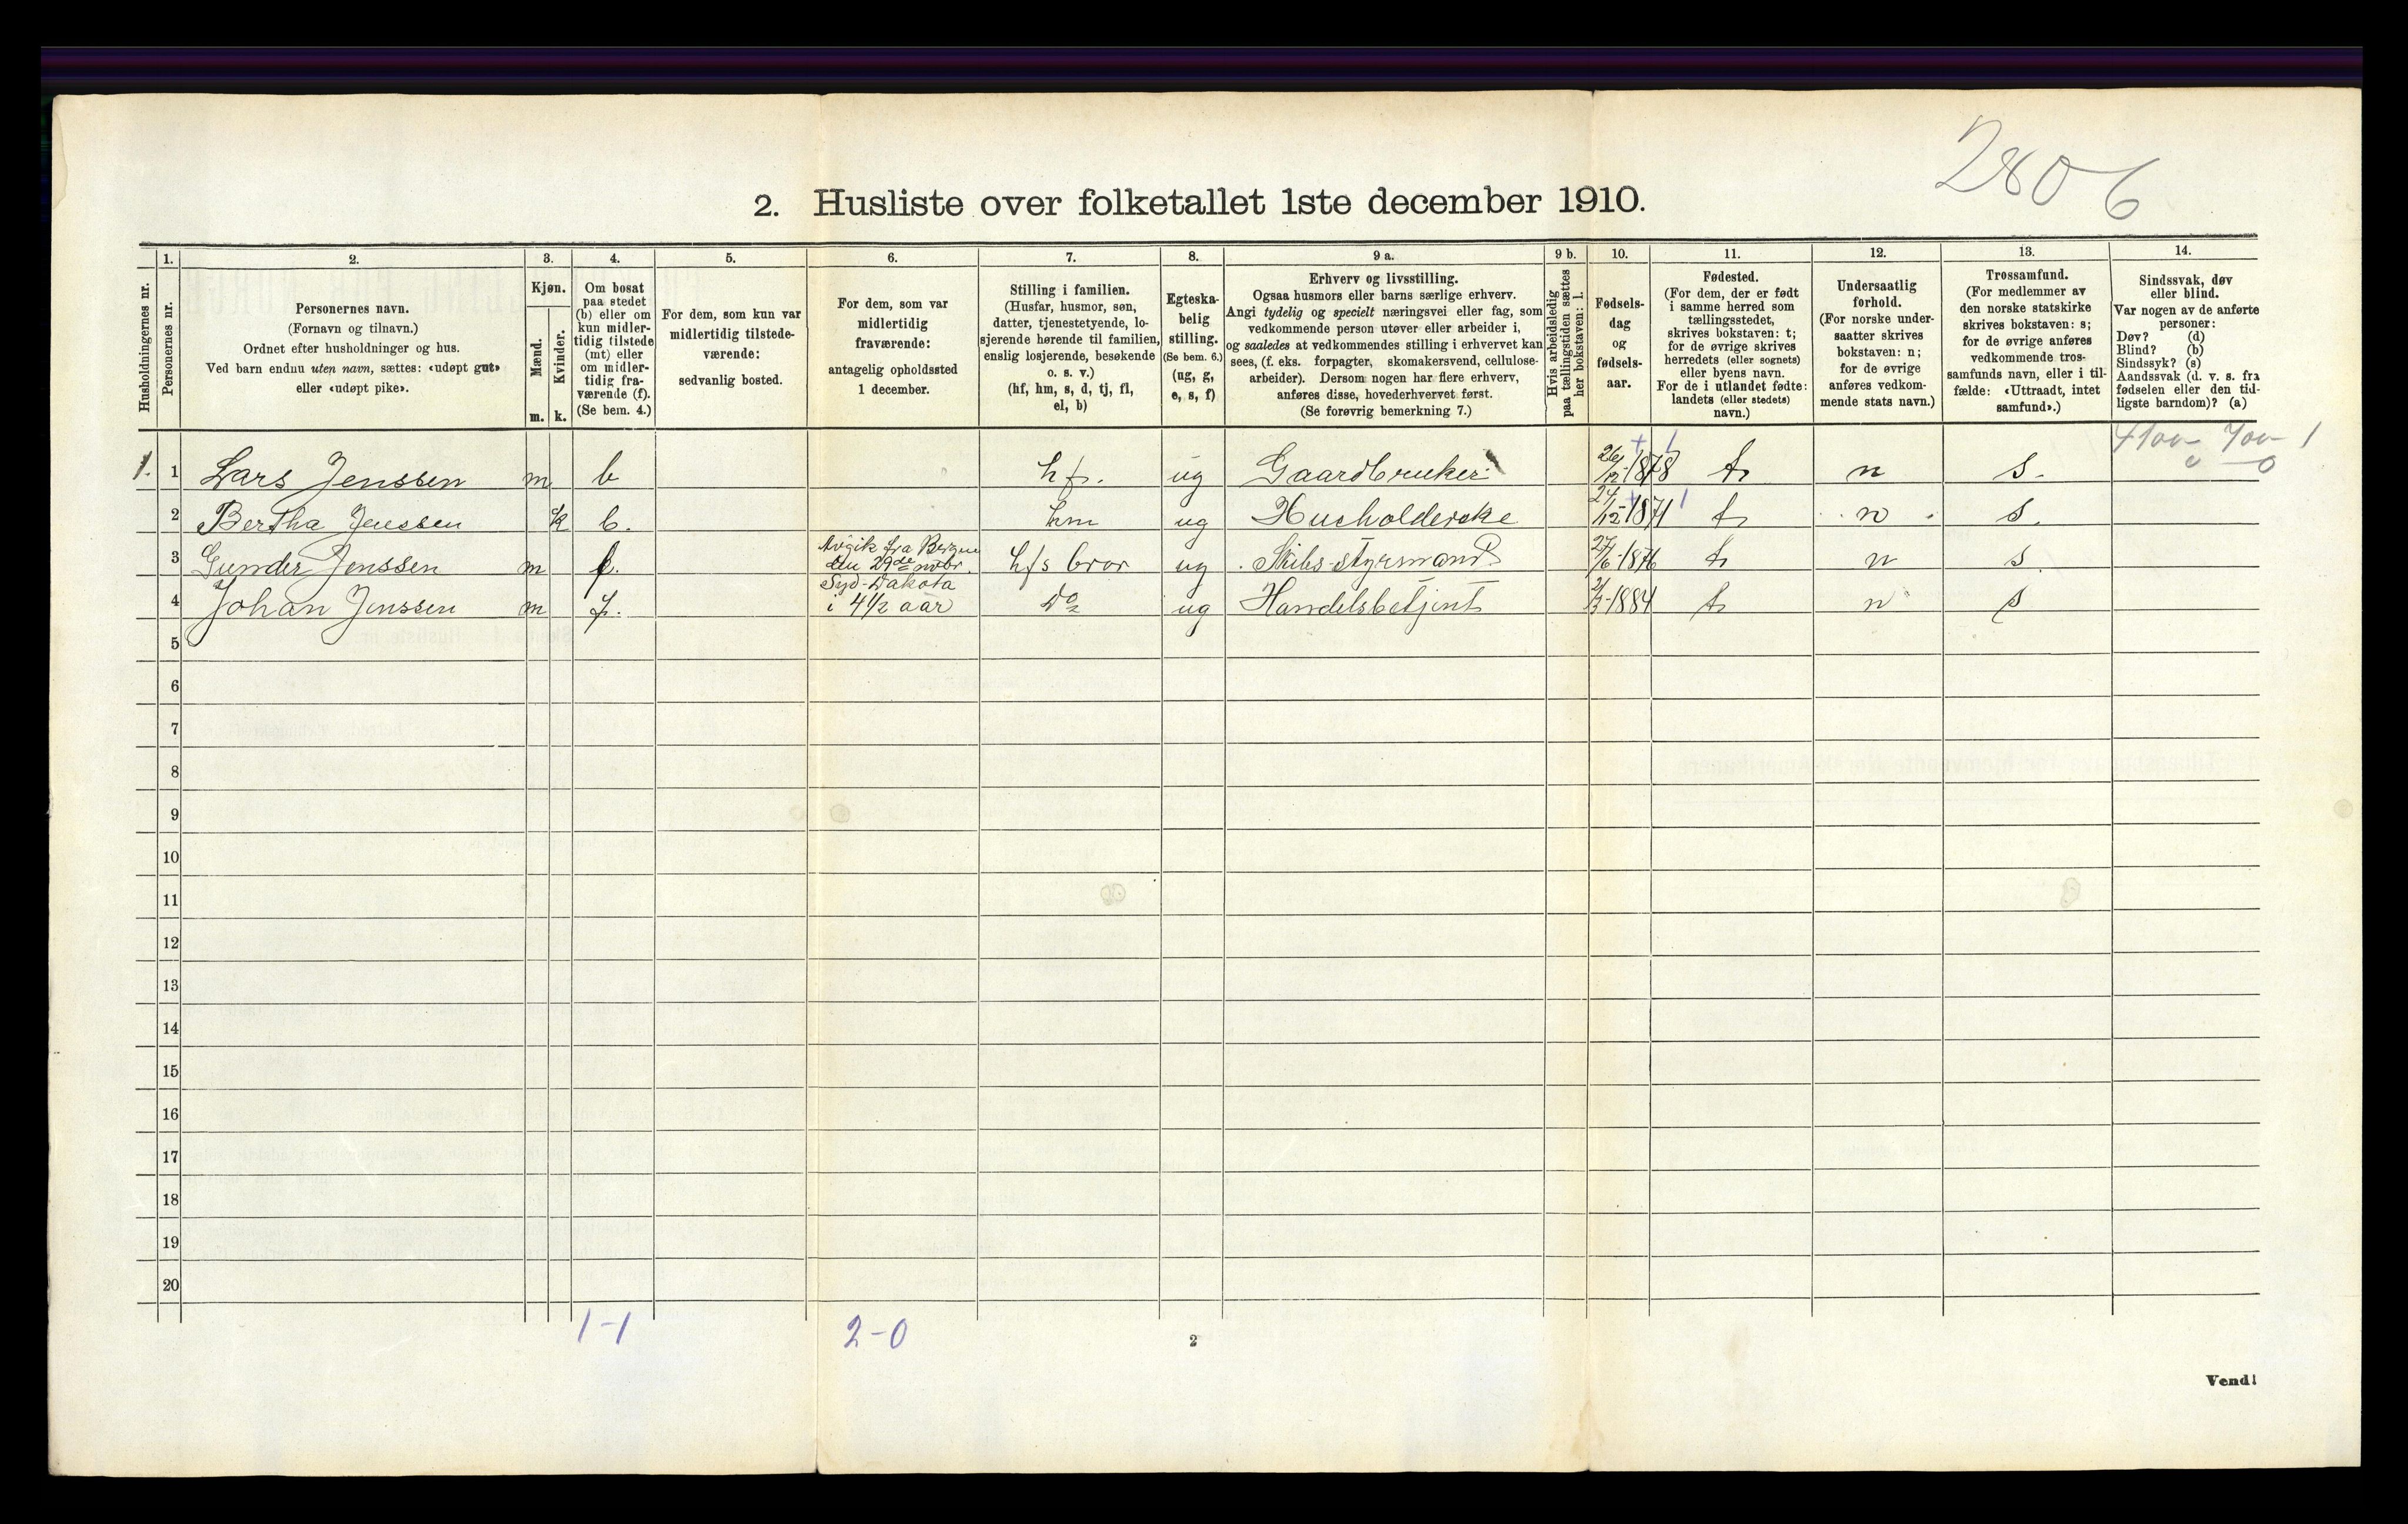 2806
2. Husliste over folketallet 1ste december 1910.
Husholdningernes nr.
1.
Personernes nr.
2.
Personernes navn.
(Fornavn og tilnavn.)
Ordnet efter husholdninger og hus.
Ved barn endnu uten navn, sættes: «udøpt gut»
eller «udøpt pike».
3.
Kjøn.
Mænd.
Kvinder.
m. k.
4.
Om bosat
paa stedet
(b) eller om
kun midler-
tidig tilstede
(mt) eller
om midler-
tidig fra-
værende (f).
(Se bem. 4.)
5.
For dem, som kun var
midlertidig tilstede-
værende:
sedvanlig bosted.
6.
For dem, som var
midlertidig
fraværende:
antagelig opholdssted
1 december.
7.
Stilling i familien.
(Husfar, husmor, søn,
datter, tjenestetyende, lo-
sjerende hørende til familien,
enslig losjerende, besøkende
o. s. v.)
(hf, hm, s, d, tj, fl,
el, b)
8.
Egteska-
belig
stilling.
(Se bem. 6.)
(ug, g,
e, s, f)
9 a.
Erhverv og livsstilling.
Ogsaa husmors eller barns særlige erhverv.
Angi tydelig og specielt næringsvei eller fag, som
vedkommende person utøver eller arbeider i,
og saaledes at vedkommendes stilling i erhvervet kan
sees, (f. eks. forpagter, skomakersvend, cellulose-
arbeider). Dersom nogen har flere erhverv,
anføres disse, hovederhvervet først.
(Se forøvrig bemerkning 7.)
9 b.
Hvis arbeidsledig
paa tællingstiden sættes
her bokstaven: l.
10.
Fødsels-
dag
og
fødsels-
aar.
11.
Fødested.
(For dem, der er født
i samme herred som
tællingsstedet,
skrives bokstaven: t;
for de øvrige skrives
herredets (eller sognets)
eller byens navn.
For de i utlandet fødte:
landets (eller stedets)
navn.)
12.
Undersaatlig
forhold.
(For norske under-
saatter skrives
bokstaven: n;
for de øvrige
anføres vedkom-
mende stats navn.)
13.
Trossamfund.
(For medlemmer av
den norske statskirke
skrives bokstaven: s;
for de øvrige anføres
vedkommende tros-
samfunds navn, eller i til-
fælde: «Uttraadt, intet
samfund».)
14.
Sindssvak, døv
eller blind.
Var nogen av de anførte
personer:
Døv? (d)
Blind? (b)
Sindssyk? (s)
Aandssvak (d. v. s. fra
fødselen eller den tid-
ligste barndom)? (a)
1. 1 Lars Jenssen m b hf. ug Gaardbruker 26/12-1878 t n s.
2 Bertha Jenssen k b. hm ug Husholderske 24/12-1871 t n s.
3 Gunder Jenssen m f. Avgik fra Bergen
den 29de novbr. hfs bror ug Skibs-styrmand 27/6-1876 t n s.
4 Johan Jenssen m f. Syd-Dakota
i 4 1/2 aar do ug Handelsbetjent 1884 t n s
5
6
7
8
9
10
11
12
13
14
15
16
17
18
19
20
1-1 2-0
2
Vend!